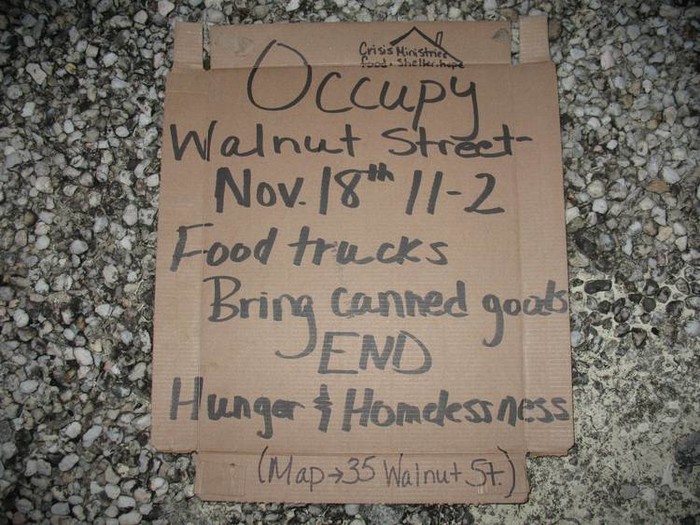 Crisis Ministries
food. shelter. hope
Occupy
Walnut Street-
Nov. 18th 11-2
Food trucks
Bring canned goods
END
Hunger & Homelessness
(Map→35 Walnut St.)